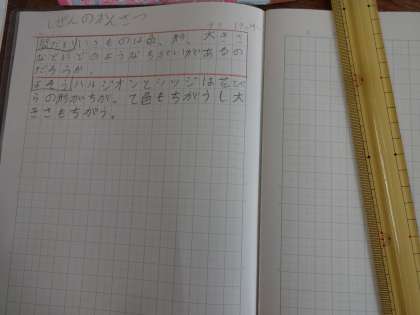 しぜんのかんさつ
生きもの は色、形、大きさ
などにどのようなちがいがあるの
だろうか。
よそう ハルジオンとツツジは花び
らの形がちがう。て色もちがうし大
きさもちがう。